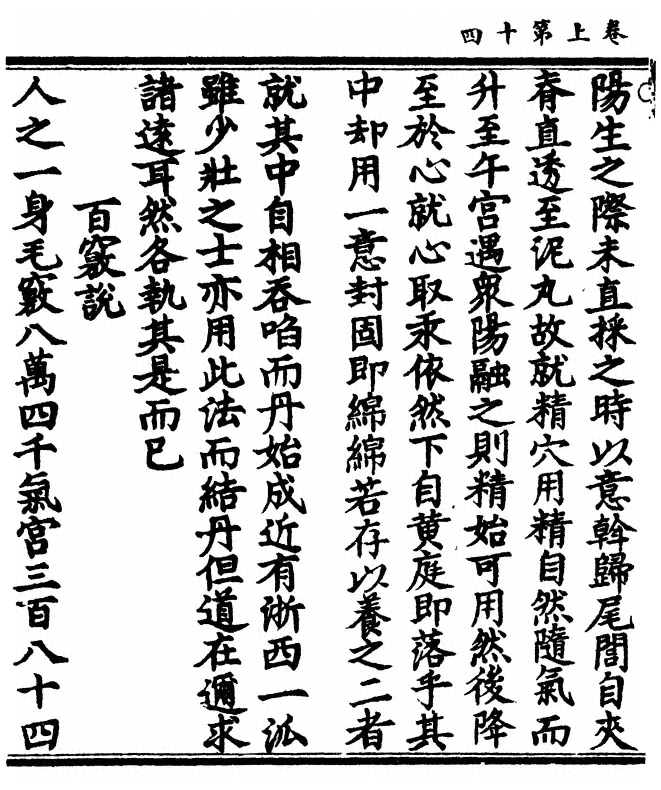 卷上第十四
陽生之際未直採之時以意斡歸尾閭自夾
脊直透至泥丸故就精穴用精自然隨氣而
升至午宮遇衆陽融之則精始可用然後降
至於心就心取汞依然下自黄庭即落乎其
中却用一意封固即綿綿若存以養之二者
就其中自相吞啗而丹始成近有浙西一派
雖少壯之士亦用此法而結丹但道在邇求
諸遠耳然各執其是而已
百竅說
人之一身毛竅八萬四千氣宮三百八十四